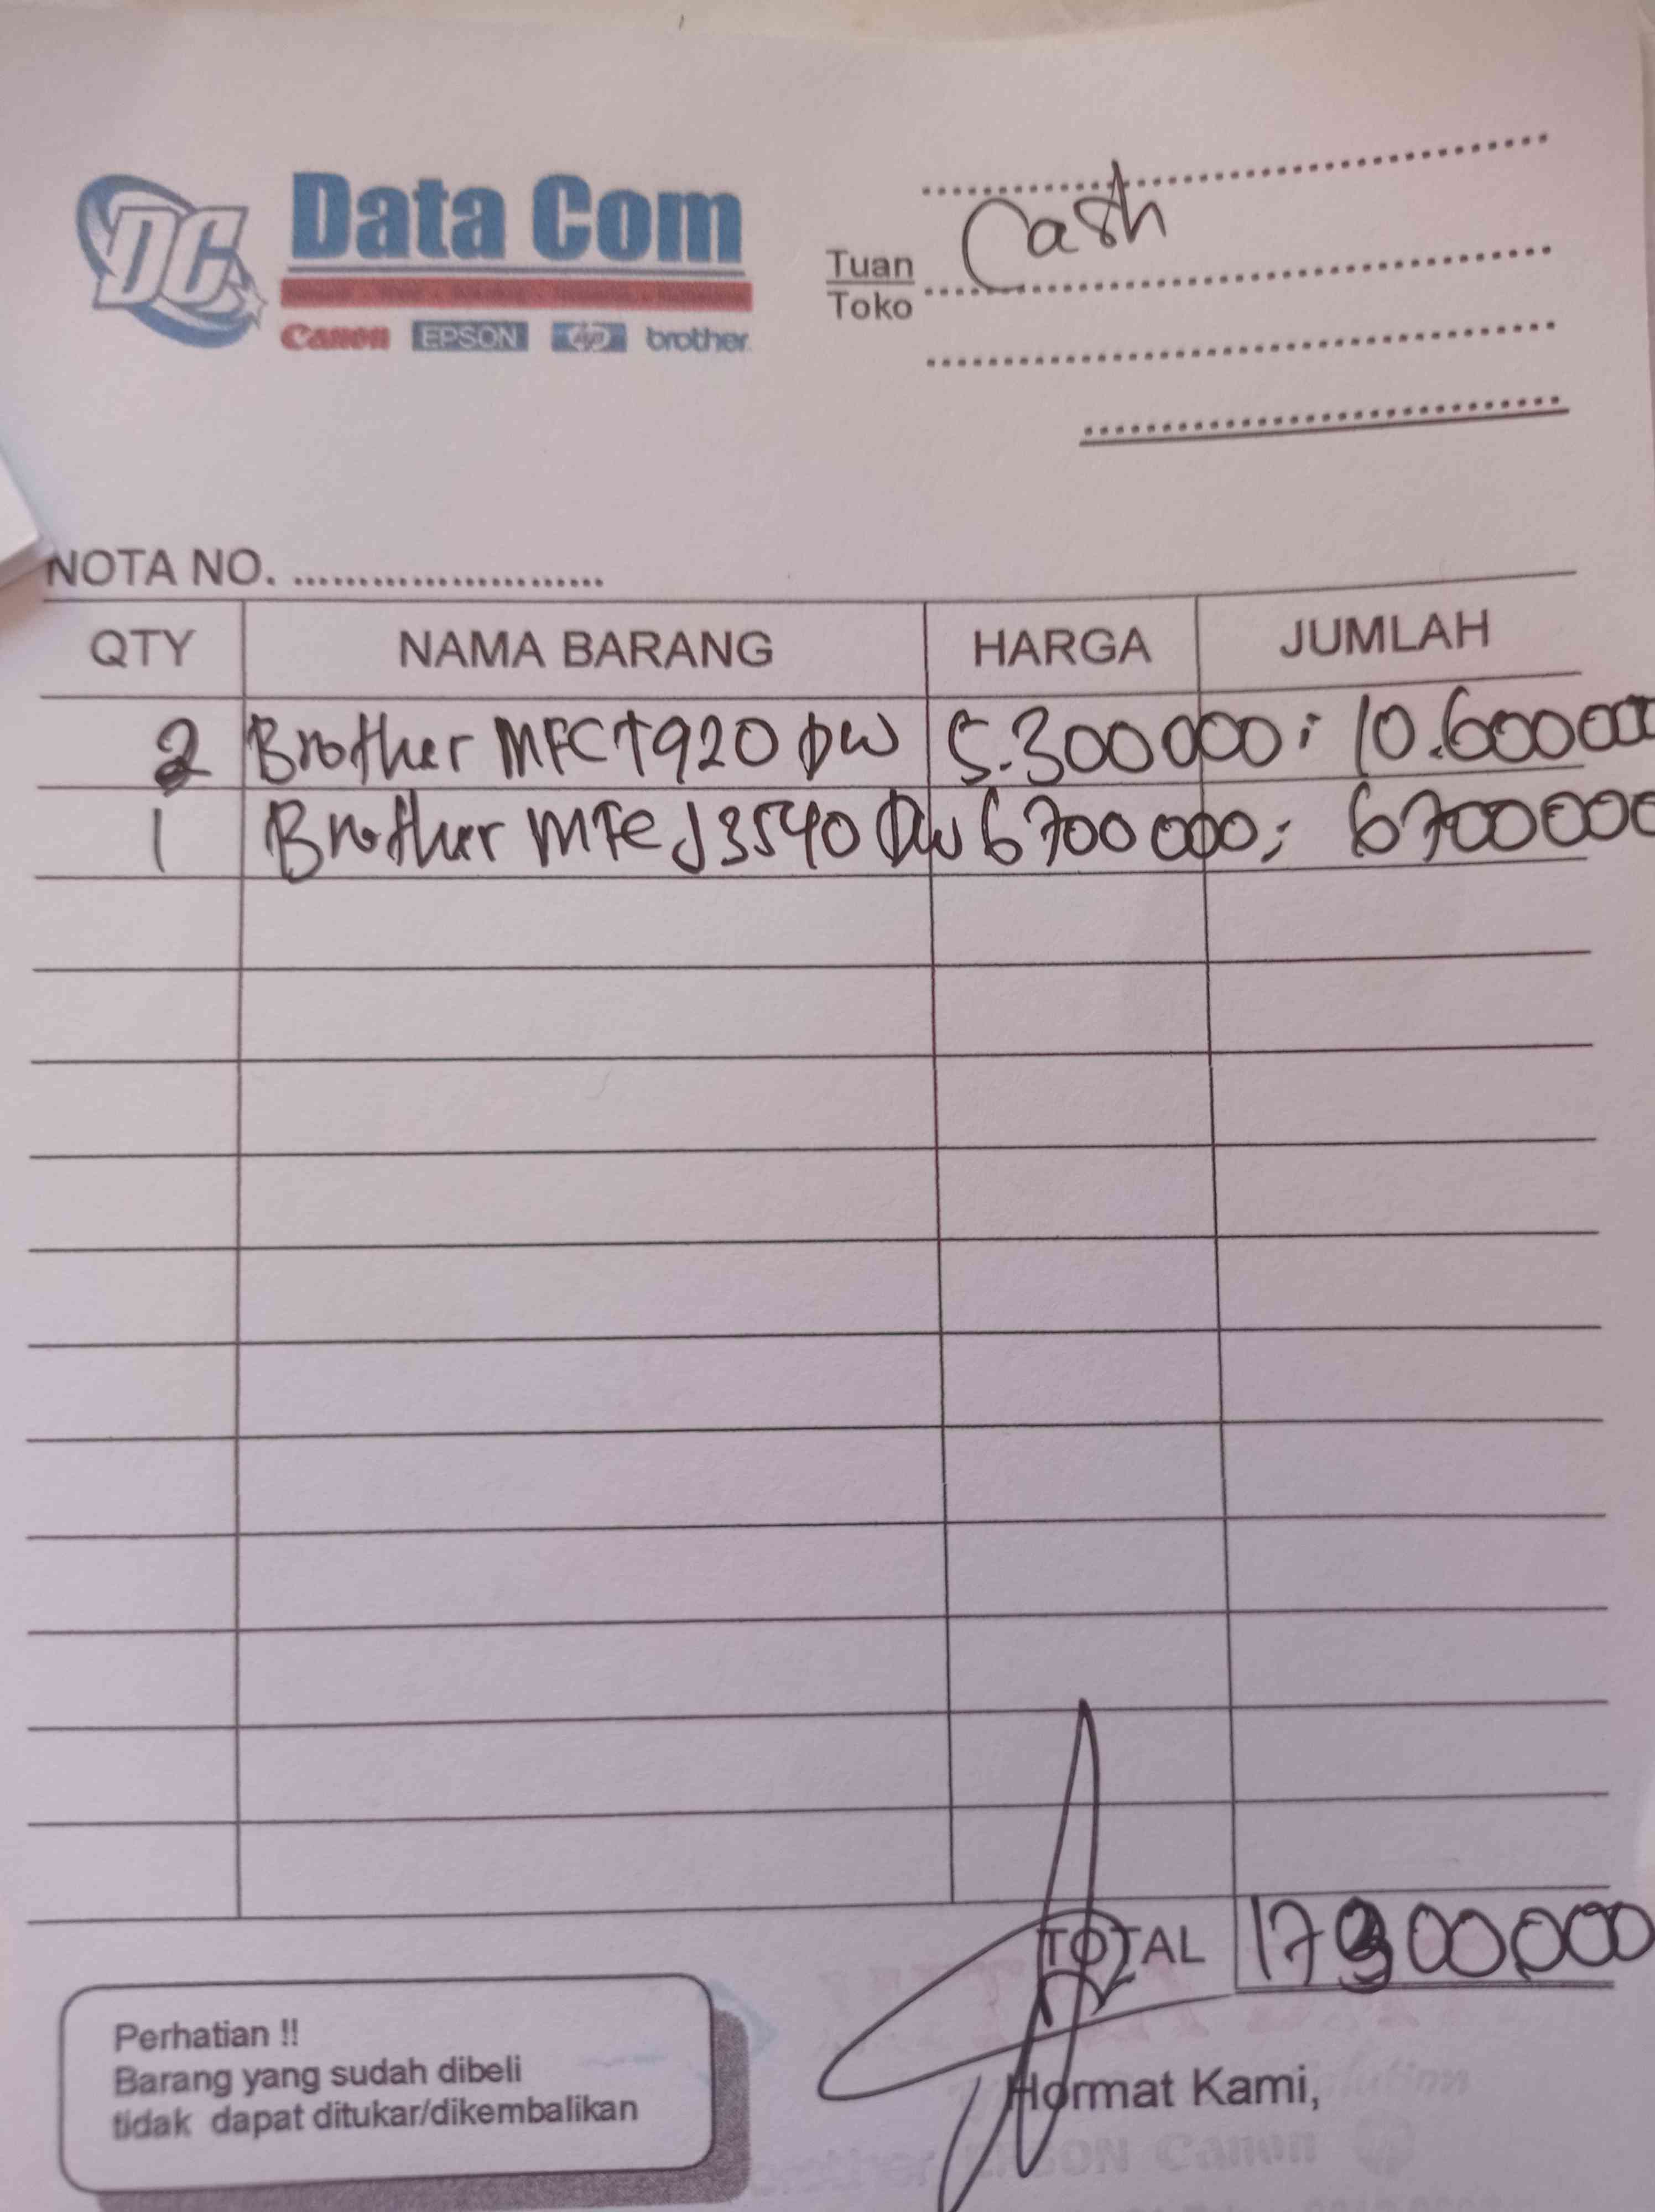 DC Data Com
Canon EPSON hp brother
Tuan Cash
Toko
NOTA NO. ........................
QTY NAMA BARANG HARGA JUMLAH
2 Brother MFC T920 DW 5.300000; 10.600000
1 Brother MFC J3540 DW 6700000; 6700000
TOTAL 17300.000
Perhatian !!
Barang yang sudah dibeli
tidak dapat ditukar/dikembalikan
Hormat Kami,